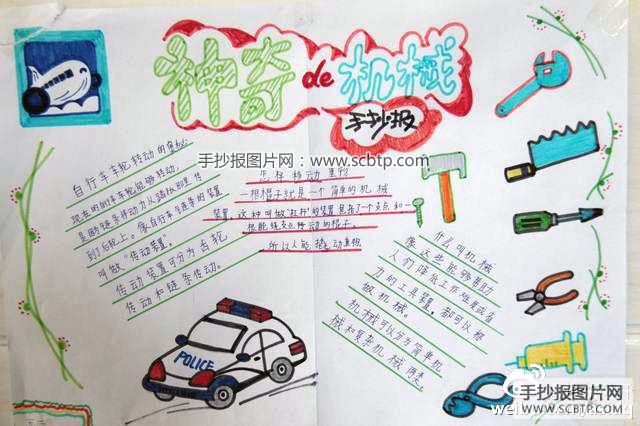 神奇de机械
手抄报
手抄报图片网：www.scbtp.com
自行车车轮转动的奥秘
现在的自行车车轮能够转动，
是助链条将动力从踏板到传
到了后轮上。像自行车链条的装置
叫做“传动装置”。
传动装置可分为齿轮
传动和链条传动。
怎样移动重物
一根棍子就是一个简单的机械
装置，这种叫做“杠杆”的装置包括了一个支点和一
根能绕支点移动的棍子。
所以人能撬动重物
什么叫机械
像这些能够帮助
人们降低工作难度或省
力的工具装置，都可以称
做机械。
机械可以分为简单机
械和复杂机械两类。
POLICE
手抄报图片网
WWW.SCBTP.COM